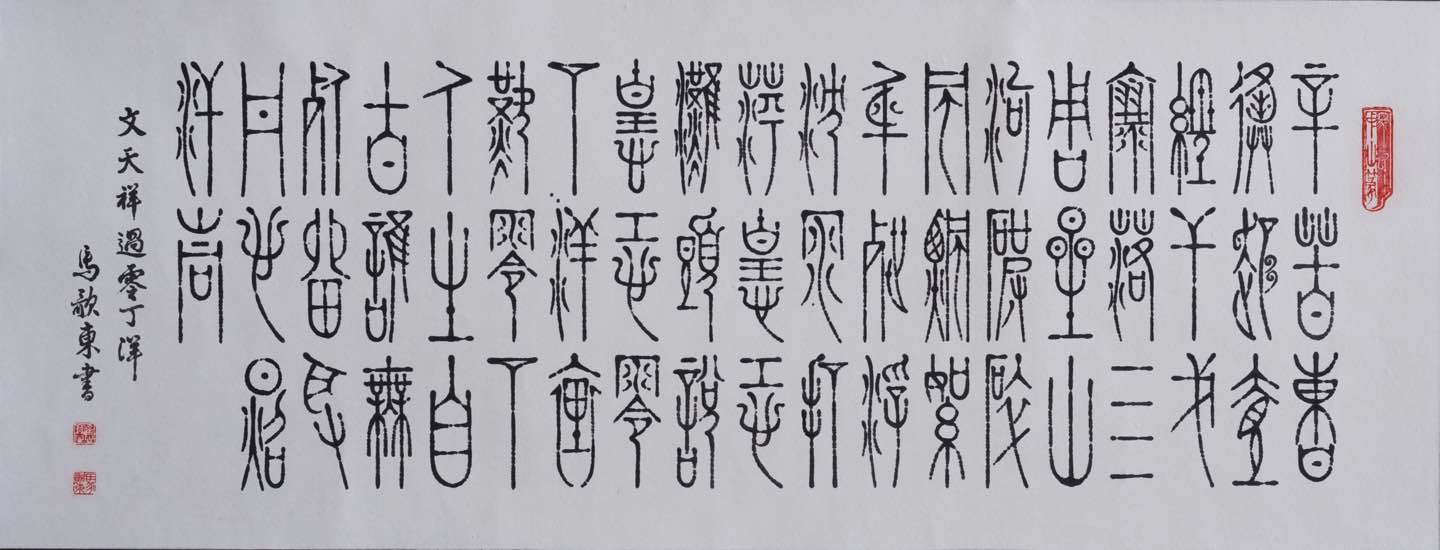 辛苦遭
逢起壹
經干戈
寥落亖
周星山
河破碎
風飄絮
身世浮
沈雨打
萍皇恐
灘頭說
皇恐零
丁洋裏
歎零丁
人生自
古誰無
死留取
丹心照
汗青
文天祥過零丁洋
馬歌東書